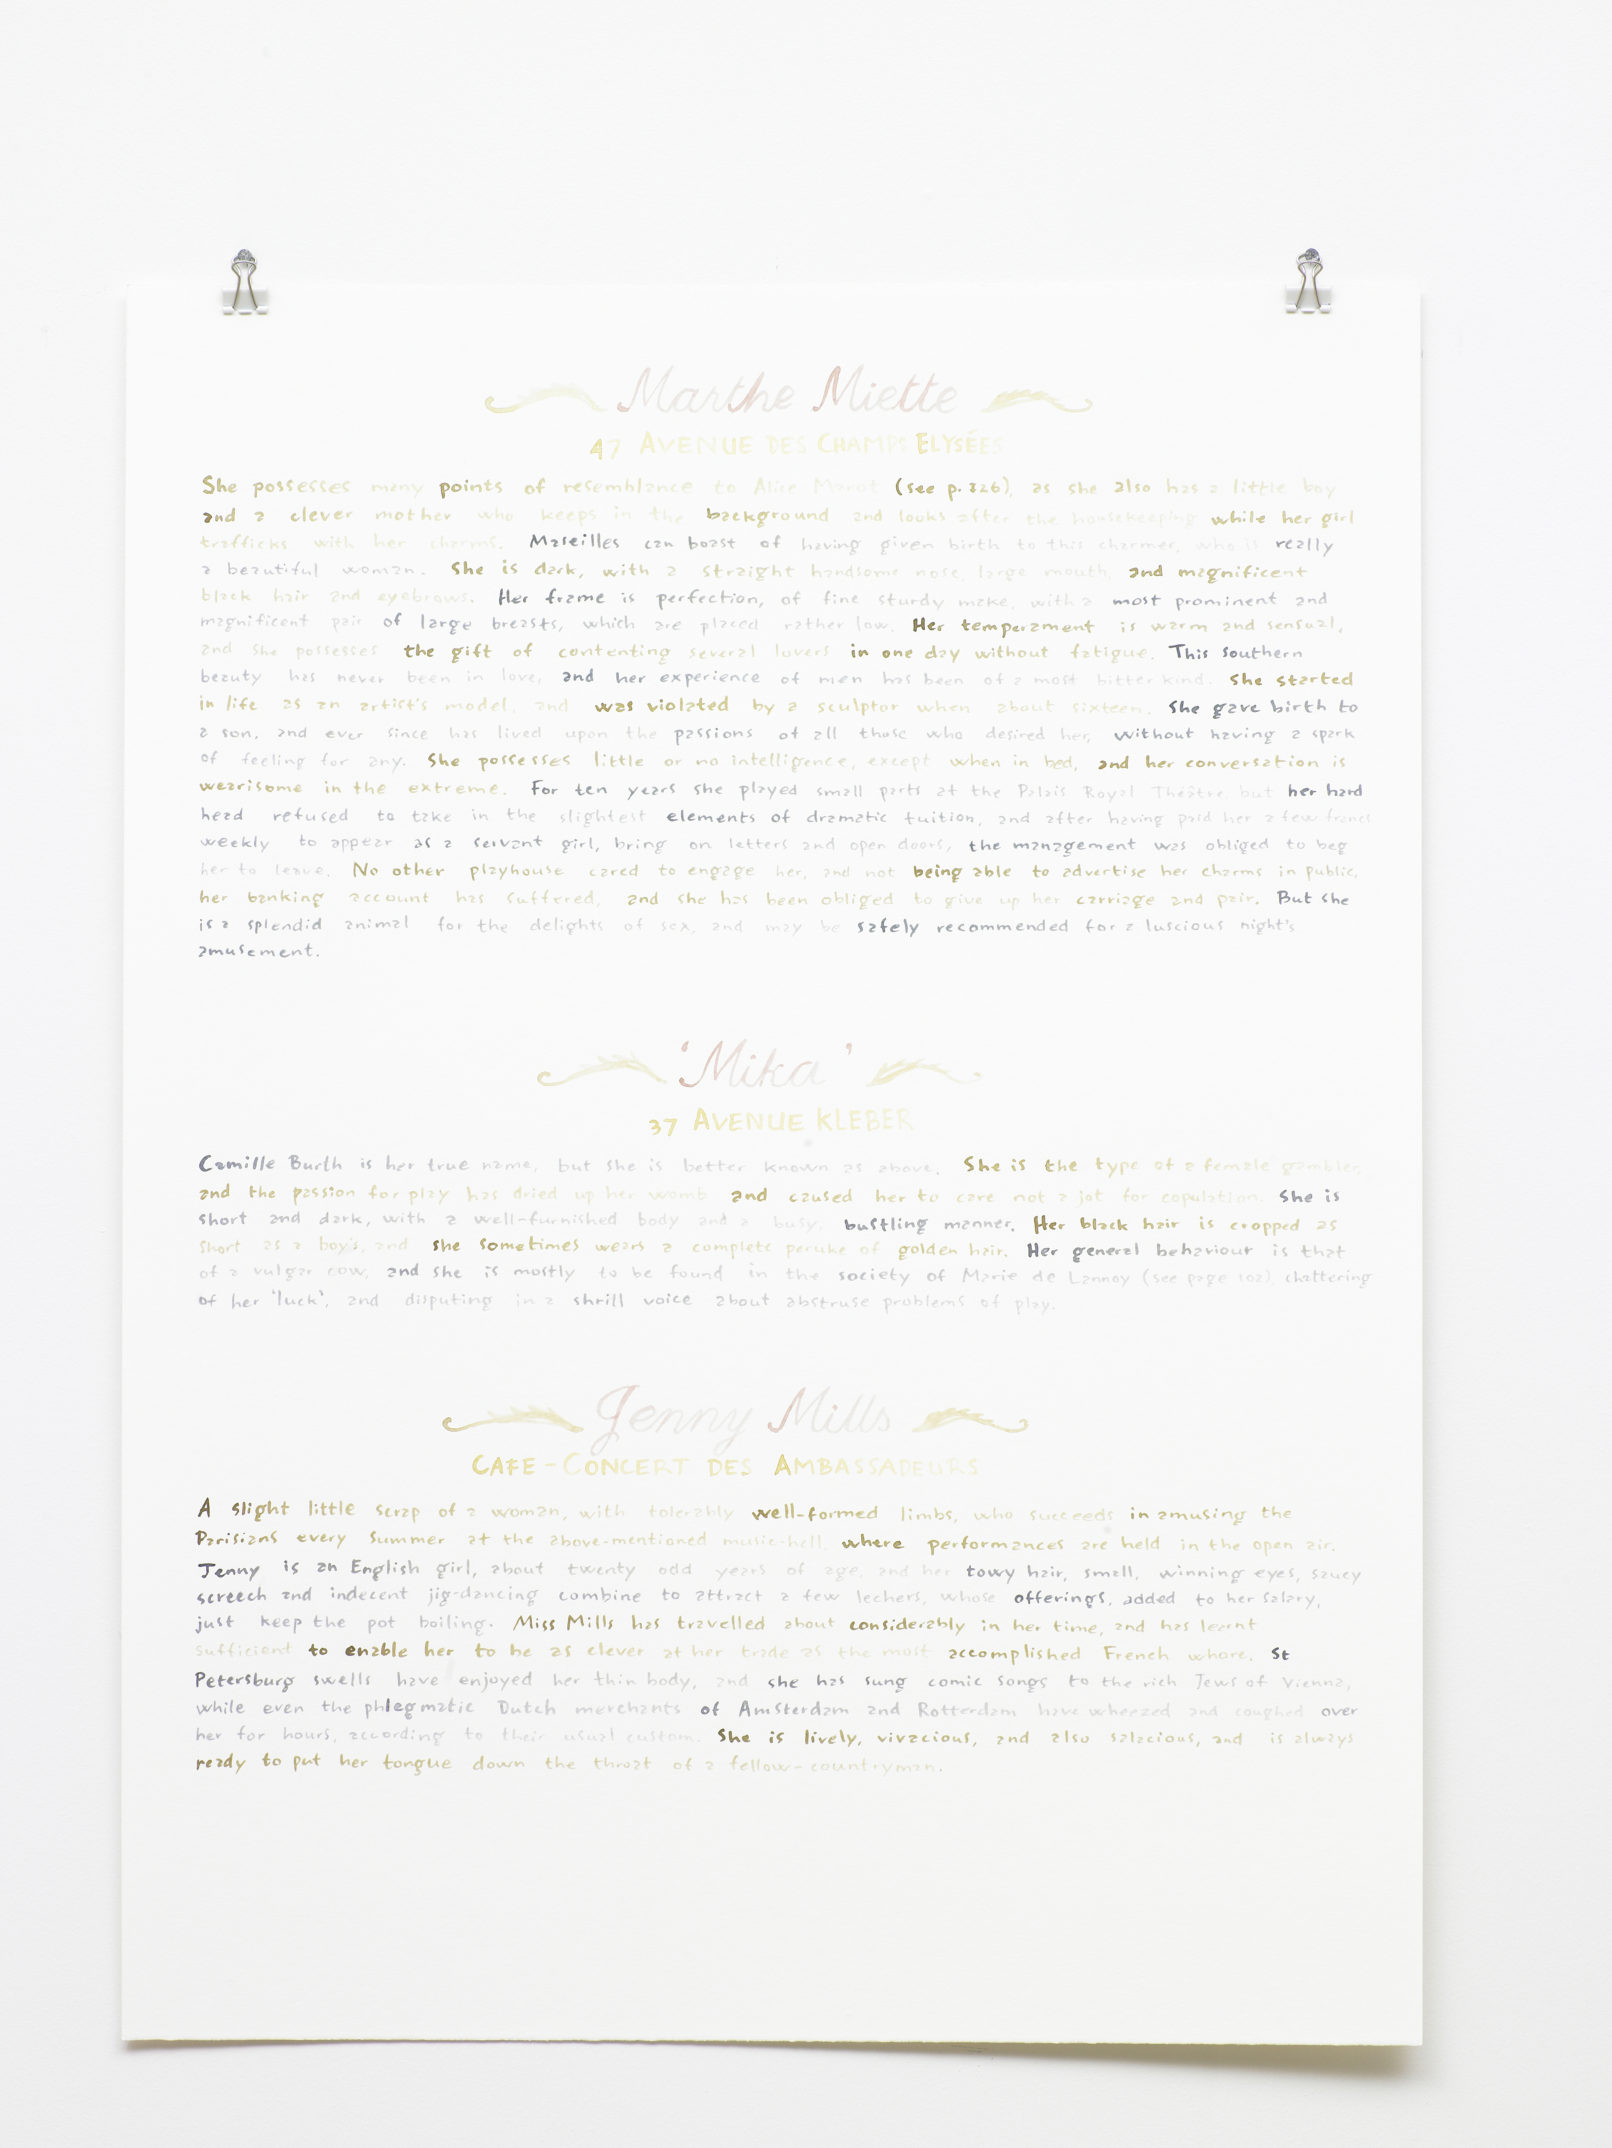 Marthe Miette
47 AVENUE DES CHAMPS ELYSÉES
She possesses many points of resemblance to Alice Marot (see p. 326), as she also has a little boy
and a clever mother who keeps in the background and looks after the housekeeping while her girl
trafficks with her charms. Marseilles can boast of having given birth to this charmer, who is really
a beautiful woman. She is dark, with a straight handsome nose, large mouth, and magnificent
black hair and eyebrows. Her frame is perfection, of fine sturdy make, with a most prominent and
magnificent pair of large breasts, which are placed rather low. Her temperament is warm and sensual,
and she possesses the gift of contenting several lovers in one day without fatigue. This southern
beauty has never been in love, and her experience of men has been of a most bitter kind. She started
in life as an artist's model, and was violated by a sculptor when about sixteen. She gave birth to
a son, and ever since has lived upon the passions of all those who desired her, without having a spark
of feeling for any. She possesses little or no intelligence, except when in bed, and her conversation is
wearisome in the extreme. For ten years she played small parts at the Palais Royal Théâtre, but her hard
head refused to take in the slightest elements of dramatic tuition, and after having paid her a few francs
weekly to appear as a servant girl, bring on letters and open doors, the management was obliged to beg
her to leave. No other playhouse cared to engage her, and not being able to advertise her charms in public,
her banking account has suffered, and she has been obliged to give up her carriage and pair. But she
is a splendid animal for the delights of sex, and may be safely recommended for a luscious night's
amusement.
'Mika'
37 AVENUE KLEBER
Camille Burth is her true name, but she is better known as above. She is the type of a female gambler,
and the passion for play has dried up her womb and caused her to care not a jot for copulation. She is
short and dark, with a well-furnished body and a busy, bustling manner. Her black hair is cropped as
short as a boy's, and she sometimes wears a complete peruke of golden hair. Her general behaviour is that
of a vulgar cow, and she is mostly to be found in the society of Marie de Lannoy (see page 102), chattering
of her 'luck', and disputing in a shrill voice about abstruse problems of play.
Jenny Mills
CAFE-CONCERT DES AMBASSADEURS
A slight little scrap of a woman, with tolerably well-formed limbs, who succeeds in amusing the
Parisians every summer at the above-mentioned music-hall, where performances are held in the open air.
Jenny is an English girl, about twenty odd years of age, and her towy hair, small, winning eyes, saucy
screech and indecent jig-dancing combine to attract a few lechers, whose offerings, added to her salary,
just keep the pot boiling. Miss Mills has travelled about considerably in her time, and has learnt
sufficient to enable her to be as clever at her trade as the most accomplished French whore. St
Petersburg swells have enjoyed her thin body, and she has sung comic songs to the rich Jews of Vienna,
while even the phlegmatic Dutch merchants of Amsterdam and Rotterdam have wheezed and coughed over
her for hours, according to their usual custom. She is lively, vivacious, and also salacious, and is always
ready to put her tongue down the throat of a fellow-countryman.